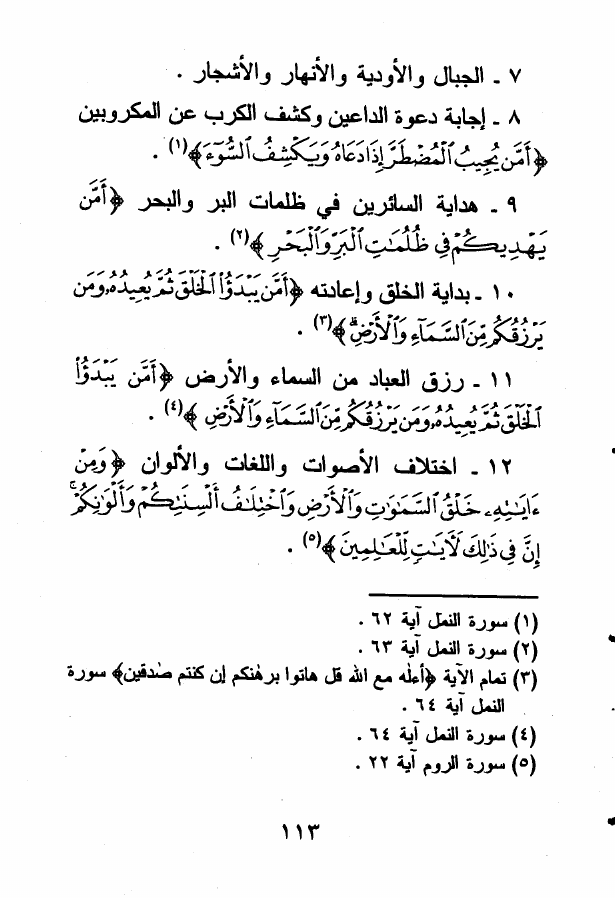 ٧ ـ الجبال والأودية والأنهار والأشجار .
٨ ـ إجابة دعوة الداعين وكشف الكرب عن المكروبين
﴿أَمَّن يُجِيبُ ٱلْمُضْطَرَّ إِذَا دَعَاهُ وَيَكْشِفُ ٱلسُّوٓءَ﴾(١) .
٩ ـ هداية السائرين في ظلمات البر والبحر ﴿أَمَّن
يَهْدِيكُمْ فِى ظُلُمَٰتِ ٱلْبَرِّ وَٱلْبَحْرِ﴾(٢) .
١٠ ـ بداية الخلق وإعادته ﴿أَمَّن يَبْدَؤُا۟ ٱلْخَلْقَ ثُمَّ يُعِيدُهُۥ وَمَن
يَرْزُقُكُم مِّنَ ٱلسَّمَآءِ وَٱلْأَرْضِ﴾(٣) .
١١ ـ رزق العباد من السماء والأرض ﴿أَمَّن يَبْدَؤُا۟
ٱلْخَلْقَ ثُمَّ يُعِيدُهُۥ وَمَن يَرْزُقُكُم مِّنَ ٱلسَّمَآءِ وَٱلْأَرْضِ﴾(٤) .
١٢ ـ اختلاف الأصوات واللغات والألوان ﴿وَمِنْ
ءَايَٰتِهِۦ خَلْقُ ٱلسَّمَٰوَٰتِ وَٱلْأَرْضِ وَٱخْتِلَٰفُ أَلْسِنَتِكُمْ وَأَلْوَٰنِكُمْ ۚ
إِنَّ فِى ذَٰلِكَ لَءَايَٰتٍ لِّلْعَٰلِمِينَ﴾(٥) .
(١) سورة النمل آية ٦٢ .
(٢) سورة النمل آية ٦٣ .
(٣) تمام الآية ﴿أءلٰه مع الله قل هاتوا برهٰنكم إن كنتم صٰدقين﴾ سورة
النمل آية ٦٤ .
(٤) سورة النمل آية ٦٤ .
(٥) سورة الروم آية ٢٢ .
١١٣